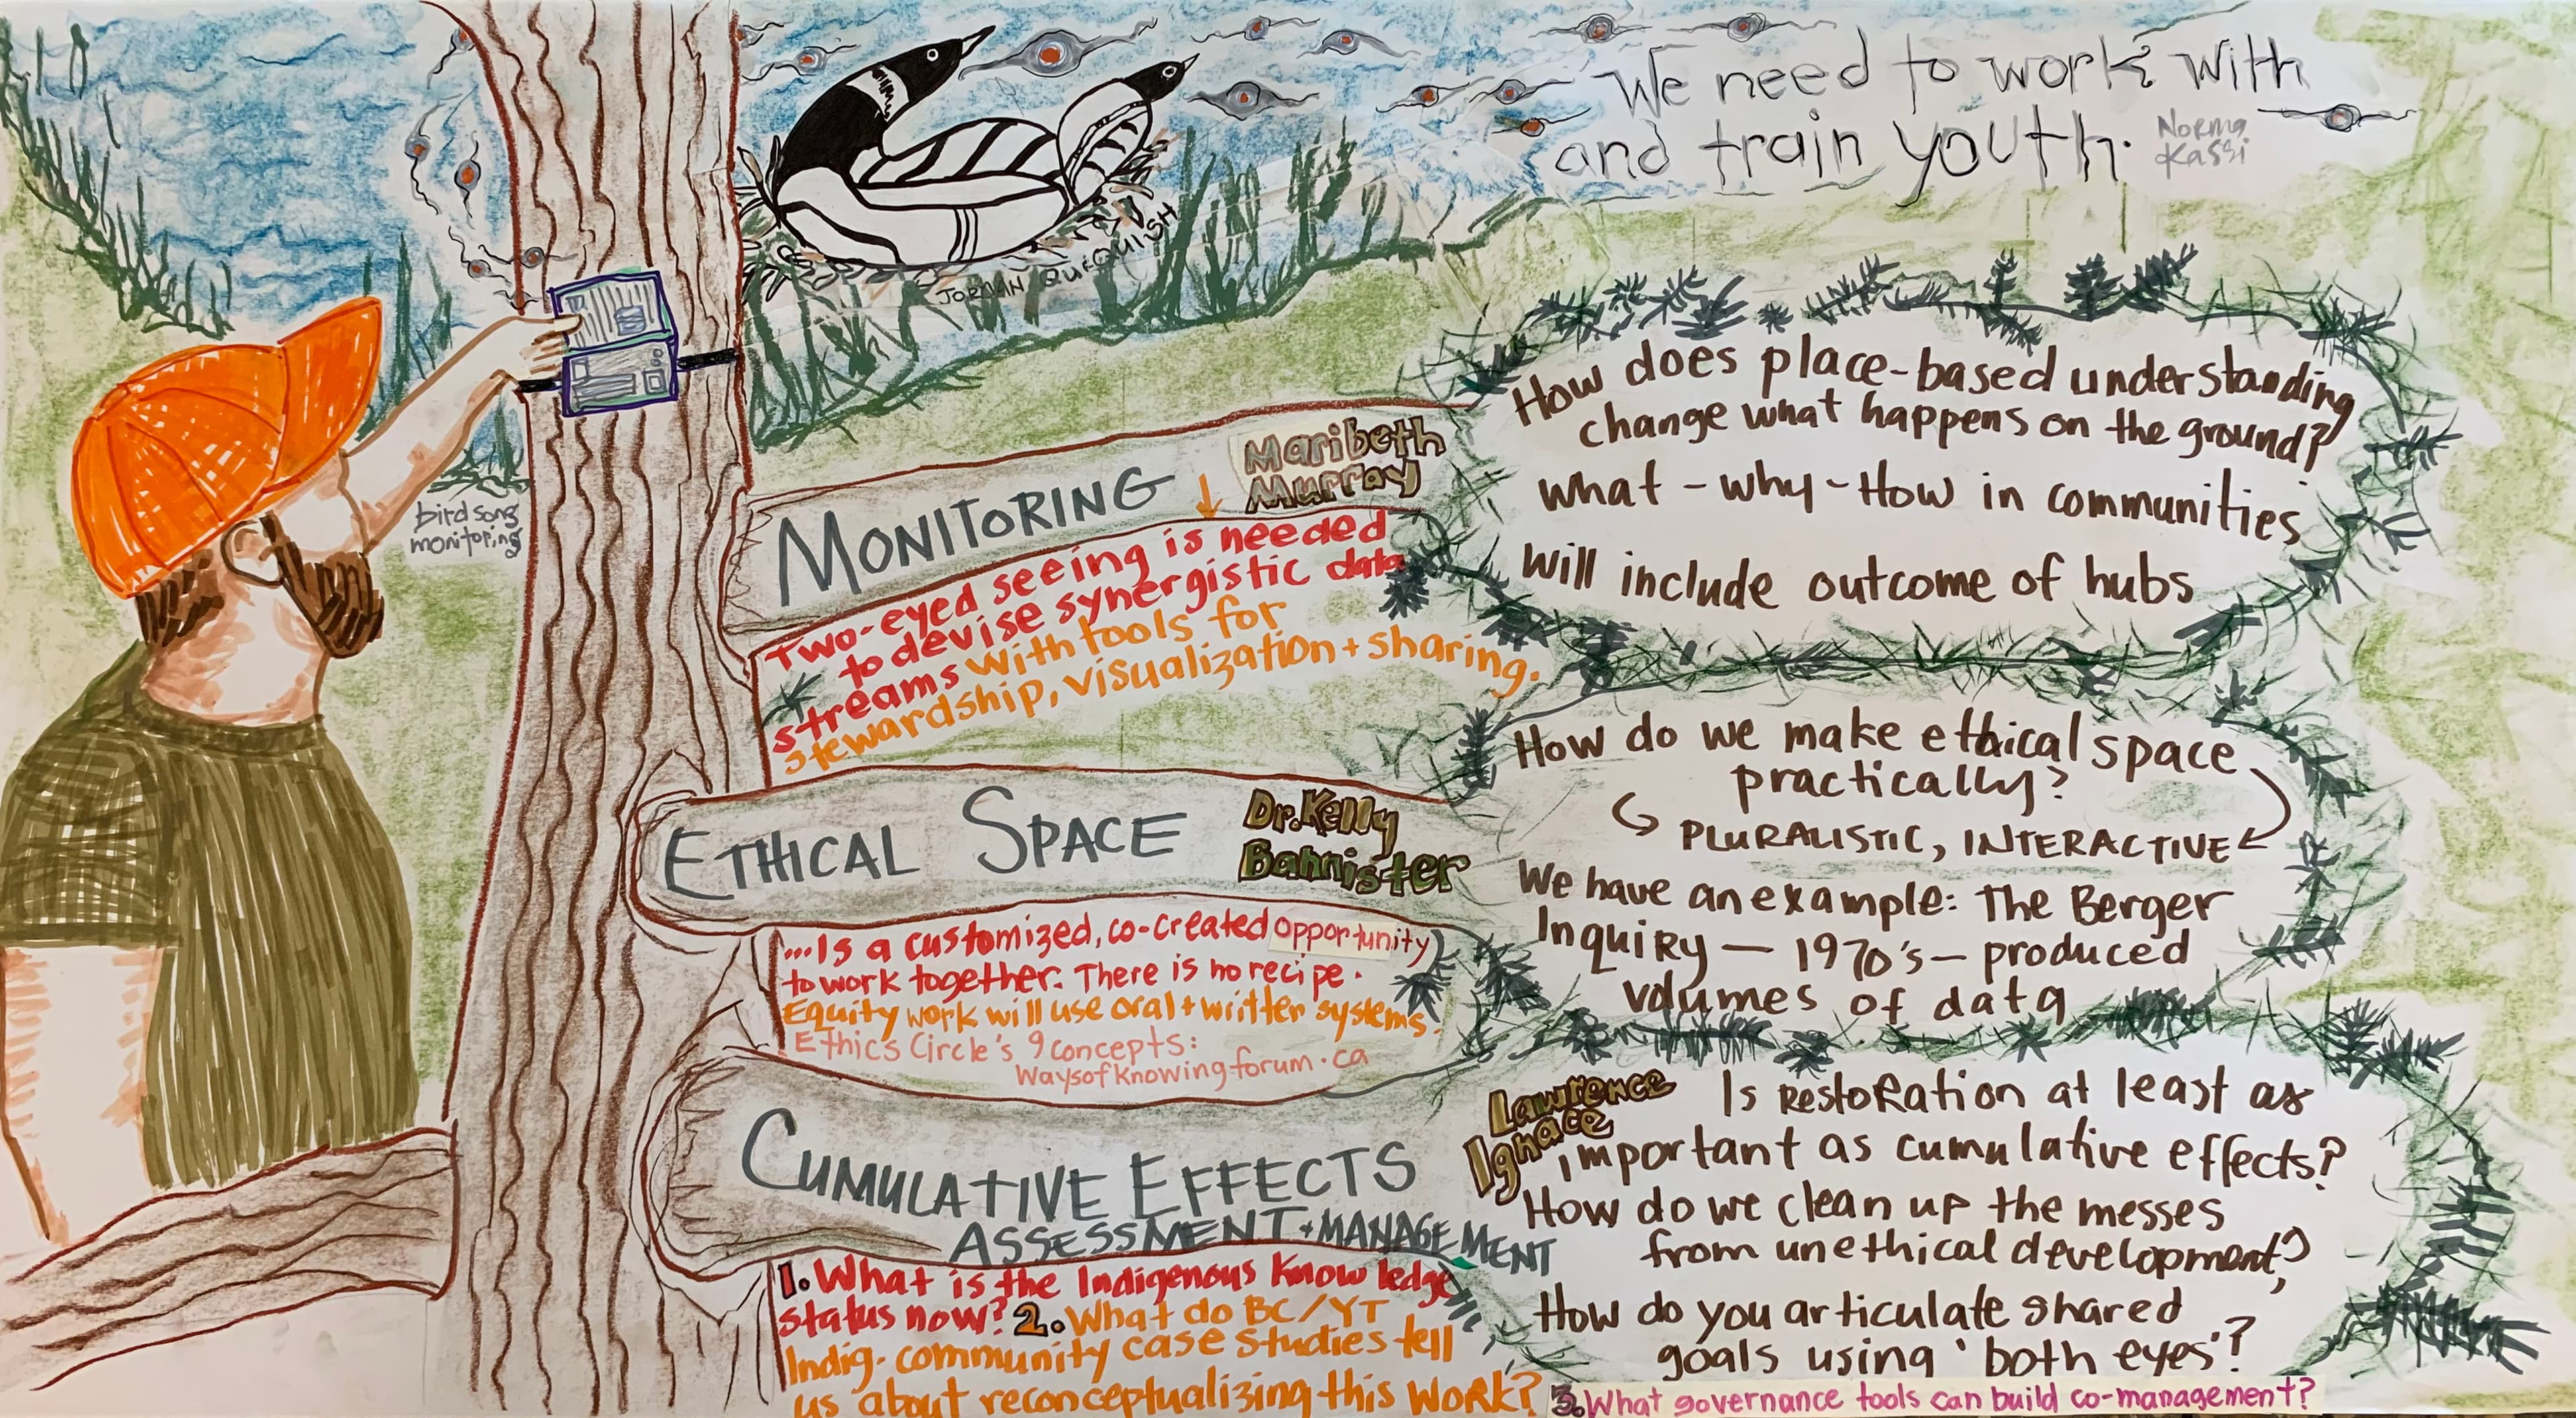 We need to work with
and train youth.
Norma
Kassi
JORDAN QUEQUISH
birdsong
monitoring
MONITORING
Maribeth
Murray
Two-eyed seeing is needed
to devise synergistic data
streams with tools for
stewardship, visualization + sharing.
How does place-based understanding
change what happens on the ground?
what - why - How in communities
will include outcome of hubs
ETHICAL SPACE
Dr. Kelly
Bannister
...Is a customized, co-created opportunity
to work together. There is no recipe.
Equity work will use oral + written systems.
Ethics Circle's 9 concepts:
Waysofknowingforum.ca
How do we make ethical space
practically?
PLURALISTIC, INTERACTIVE
We have an example: The Berger
Inquiry — 1970's — produced
volumes of data
CUMULATIVE EFFECTS
ASSESSMENT + MANAGEMENT
1. What is the Indigenous Knowledge
status now? 2. What do BC/YT
Indig. community case studies tell
us about reconceptualizing this work?
Lawrence
Ignace
Is Restoration at least as
important as cumulative effects?
How do we clean up the messes
from unethical development?
How do you articulate shared
goals using 'both eyes'?
3. What governance tools can build co-management?